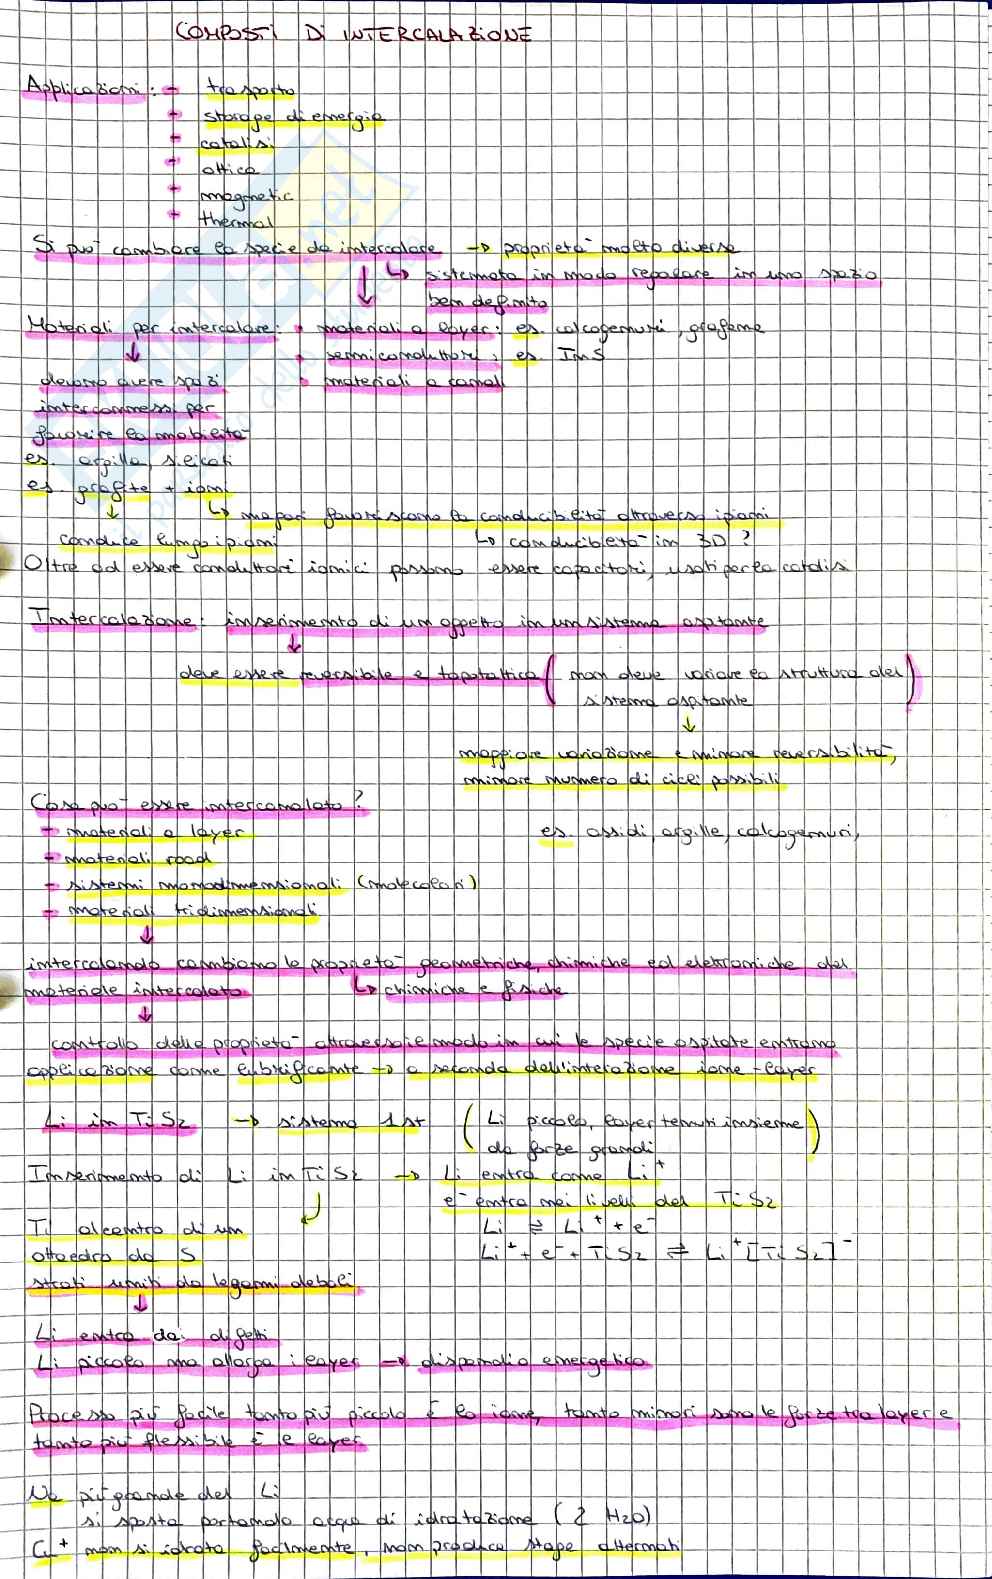 COMPOSTI DI INTERCALAZIONE
Applicazioni: - trasporto
- storage di energia
- catalisi
- ottica
- magnetic
- thermal
Si può cambiare la specie da intercalare → proprietà molto diverse
↳ sistemata in modo regolare in uno spazio
ben definito
Materiali per intercalare: • materiali a layer: es. calcogenuri, grafene
• semiconduttori: es InS
devono avere spazi • materiali a canali
interconnessi per
favorire la mobilità
es. argilla, silicati
es. grafite + ioni
↳ magari favoriscono la conducibilità attraverso i piani
conduce lungo i piani ↳ conducibilità in 3D ?
Oltre ad essere conduttori ionici possono essere capacitori, usati per la catalisi
Intercalazione: inserimento di un oggetto in un sistema ospitante
deve essere reversibile e topotattica ( non deve variare la struttura del
sistema ospitante )
maggiore variazione è minore reversibilità,
minore numero di cicli possibili
Cosa può essere intercanalato?
- materiali a layer es. ossidi, argille, calcogenuri,
- materiali road
- sistemi monodimensionali (molecolari)
- materiali tridimensionali
intercalando cambiano le proprietà geometriche, chimiche ed elettroniche del
materiale intercalato ↳ chimiche e fisiche
controllo delle proprietà attraverso il modo in cui le specie ospitate entrano
applicazione come lubrificante → a seconda dell'interazione ione-layer
Li in TiS2 → sistema 1st ( Li piccolo, layer tenuti insieme
da forze grandi )
Inserimento di Li in TiS2 → Li entra come Li+
e- entra nei livelli del TiS2
Ti al centro di un Li ⇌ Li+ + e-
ottaedro da S Li+ + e- + TiS2 ⇌ Li+[TiS2]-
strati uniti da legami deboli
Li entra dai difetti
Li piccolo ma allarga i layer → dispendio energetico
Processo più facile tanto più piccolo è lo ione, tanto minori sono le forze tra layer e
tanto più flessibile è il layer
Na più grande del Li
si sposta portando acqua di idratazione (2 H2O)
Cu+ non si idrata facilmente, non produce stage alternati